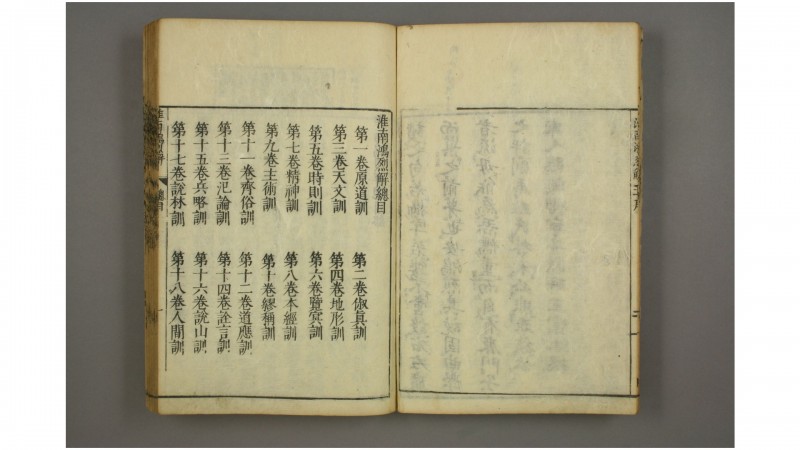 淮南鴻烈解總目
第一卷原道訓
第二卷俶真訓
第三卷天文訓
第四卷地形訓
第五卷時則訓
第六卷覽冥訓
第七卷精神訓
第八卷本經訓
第九卷主術訓
第十卷繆稱訓
第十一卷齊俗訓
第十二卷道應訓
第十三卷氾論訓
第十四卷詮言訓
第十五卷兵略訓
第十六卷說山訓
第十七卷說林訓
第十八卷人間訓
總目